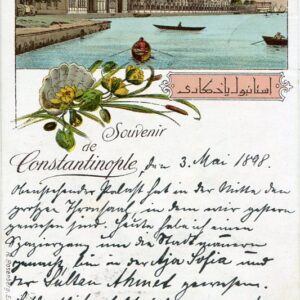 استانبول
Souvenir
de
Constantinople, den 3. Mai 1898.
Umstehender Palast hat in der Mitte den
großen Thronsaal, in dem wir gestern
gewesen sind. Heute habe ich einen
Spaziergang um die Stadtmauern
gemacht, bin in der Aja Sofia und
der Sultan Ahmet gewesen.